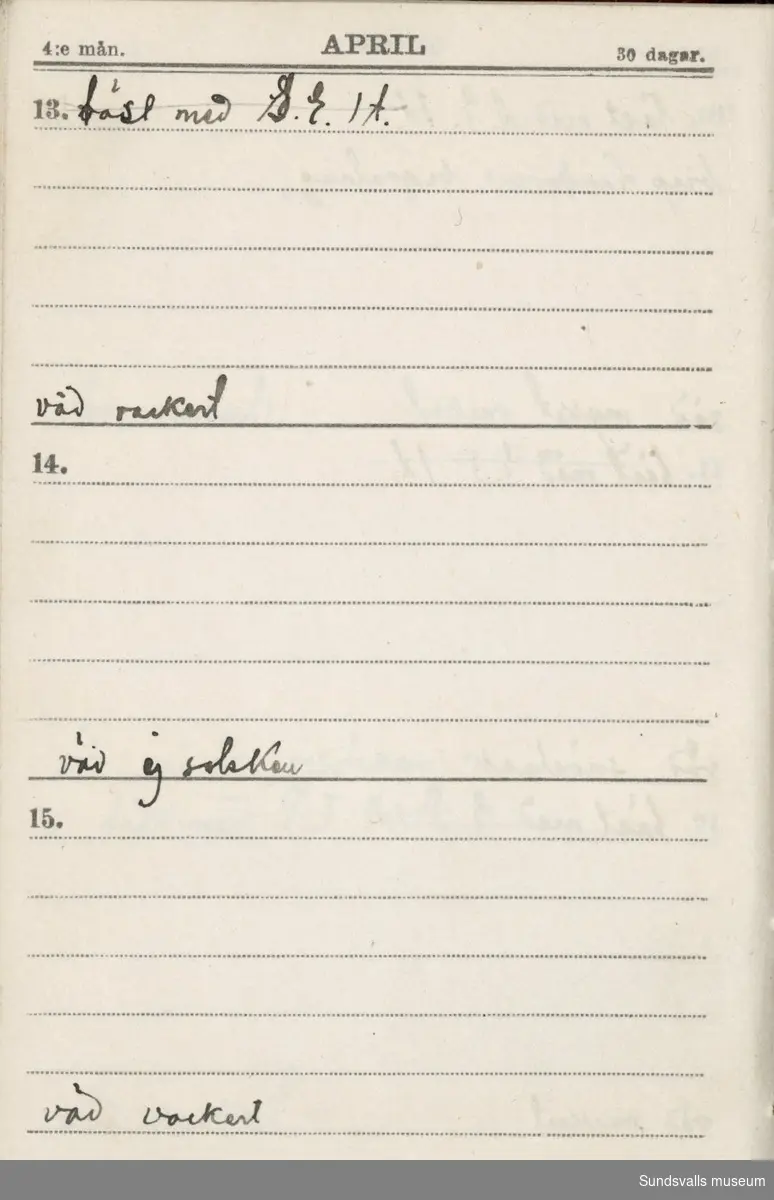 4:e mån. APRIL 30 dagar.
13. läst med S. E. 1 t.
väd vackert
14.
väd ej solsken
15.
väd vackert
Sundsvalls museum